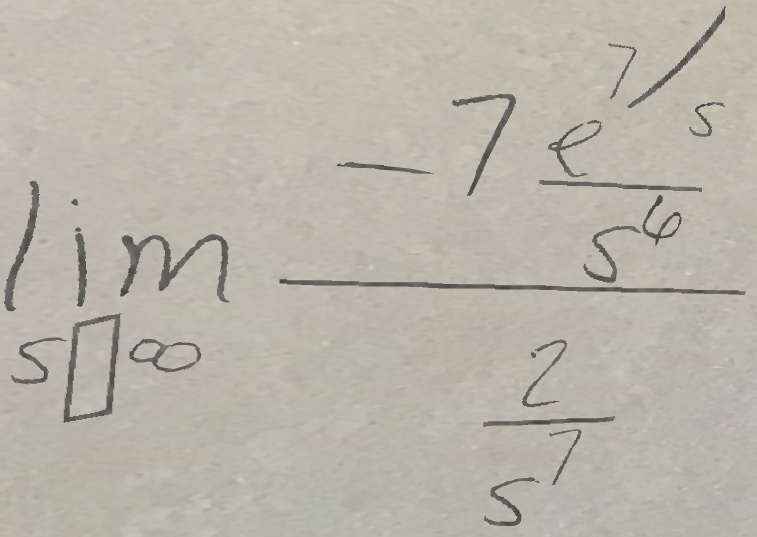 \lim_{s \square \infty} \frac{-7 \frac{e^{7/s}}{s^6}}{\frac{2}{s^7}}